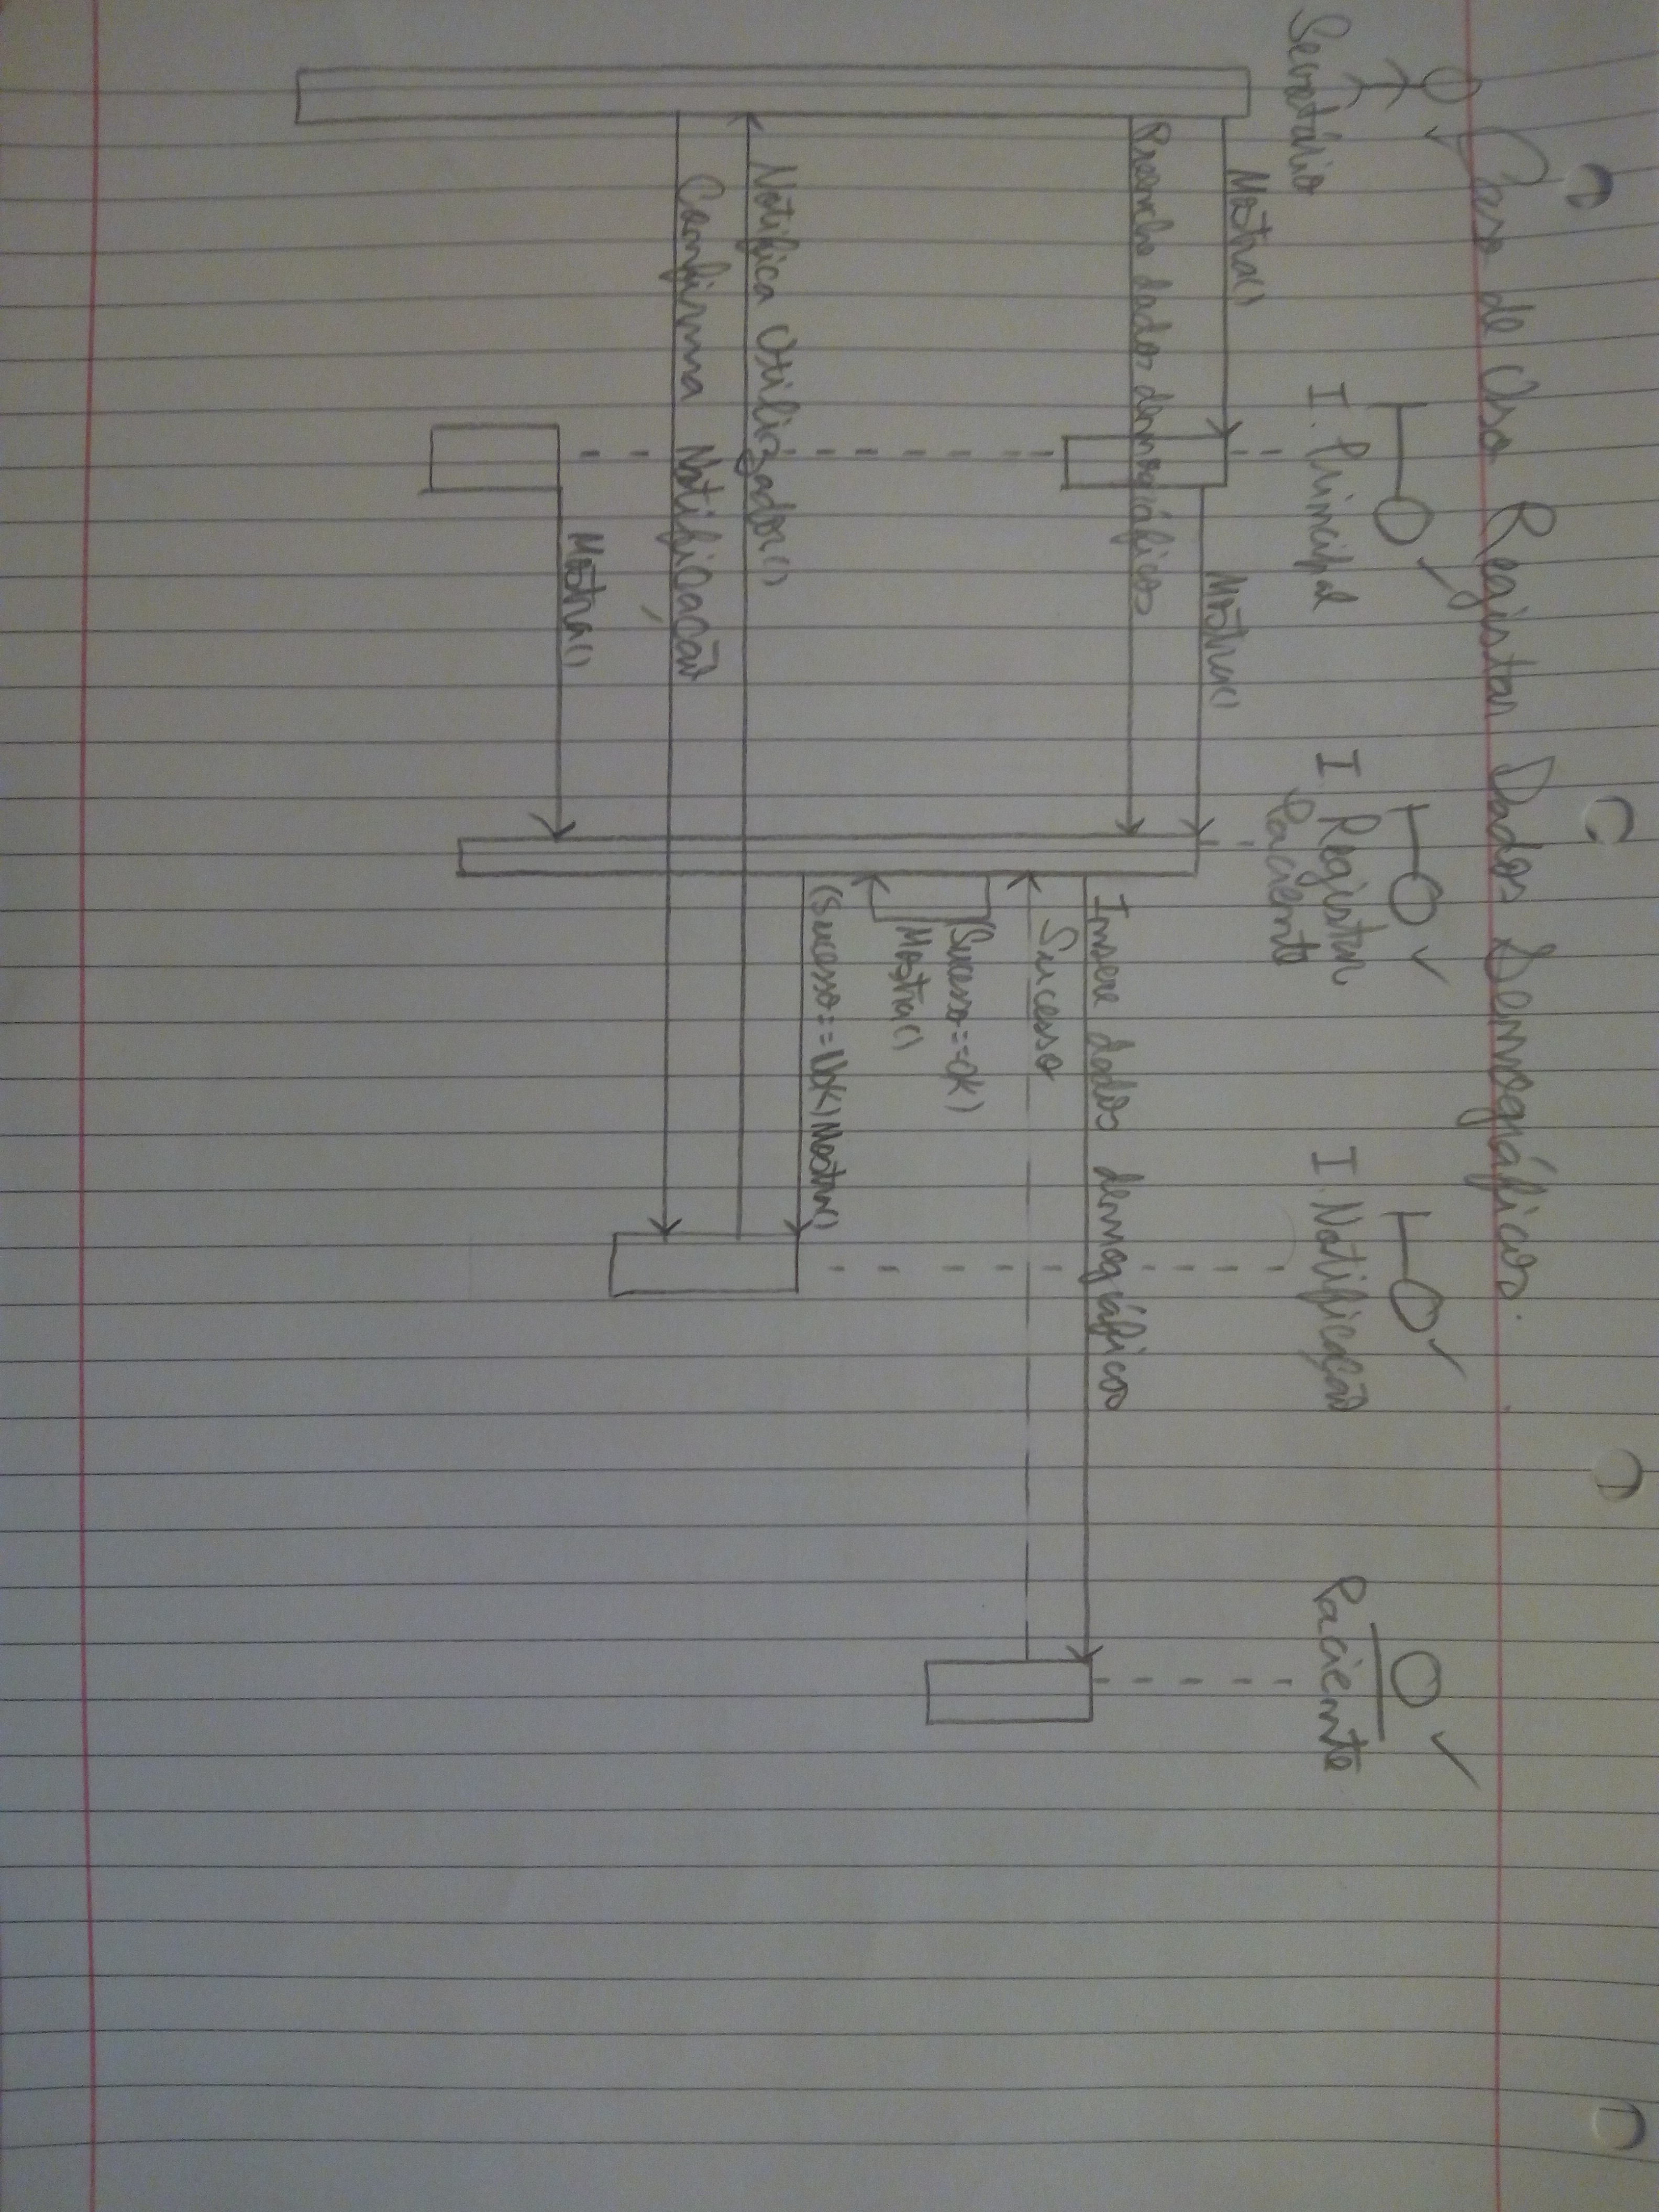 Caso de Uso Registar Dados Demográficos.
Secretário
I. Principal
I Registar
Paciente
I. Notificação
Paciente
Mostra()
Mostra()
Preenche dados demográficos
Insere dados demográficos
Sucesso
(Sucesso==OK)
Mostra()
(Sucesso==NOK) Mostra()
Notifica Utilizador()
Confirma Notificação
Mostra()